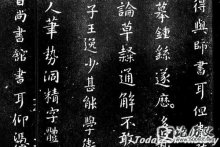 得與師書耳但
摹鍾繇遂歷多
論草隸通解不敢
子王逸少甚能學衛
人筆勢洞精字體
晉尚書館書耳仰馮